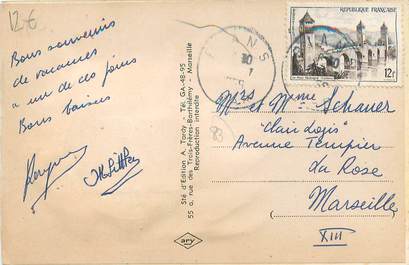 12€
Bons souvenirs
de vacances
a un de ces jours
Bons baisers
Sté d'Edition A. Tardy - Tél. GA-48-95
55 a, rue des Trois-Frères-Barthélemy - Marseille
Reproduction interdite
ary
RÉPUBLIQUE FRANÇAISE
12F
ANS
Mrs et Mme Schauer
"Clau Logis"
Avenue Tempier
La Rose
Marseille
XIII